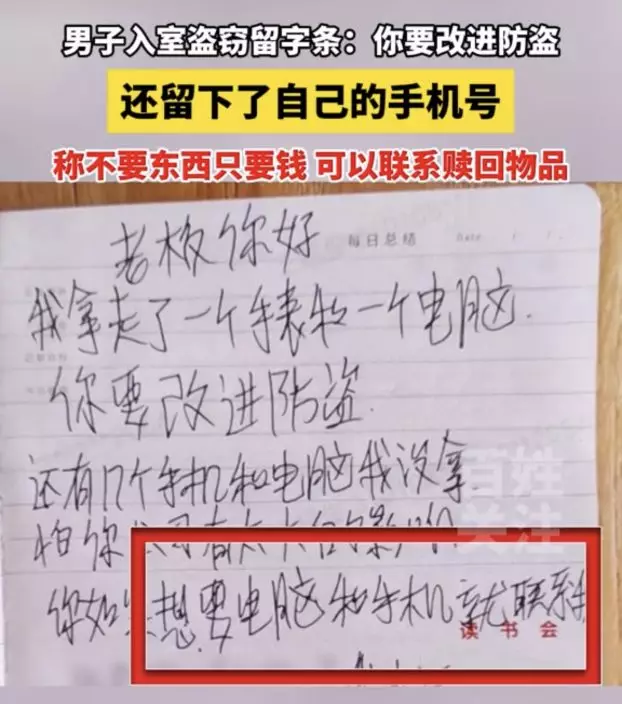 男子入室盗窃留字条：你要改进防盗
还留下了自己的手机号
称不要东西只要钱 可以联系赎回物品
老板你好
每日总结 Date / /
我拿走了一个手表和一个电脑.
你要改进防盗.
还有几个手机和电脑我没拿
百姓关注
怕你公司有太大的影响
你如 想要电脑和手机就联系
读书会